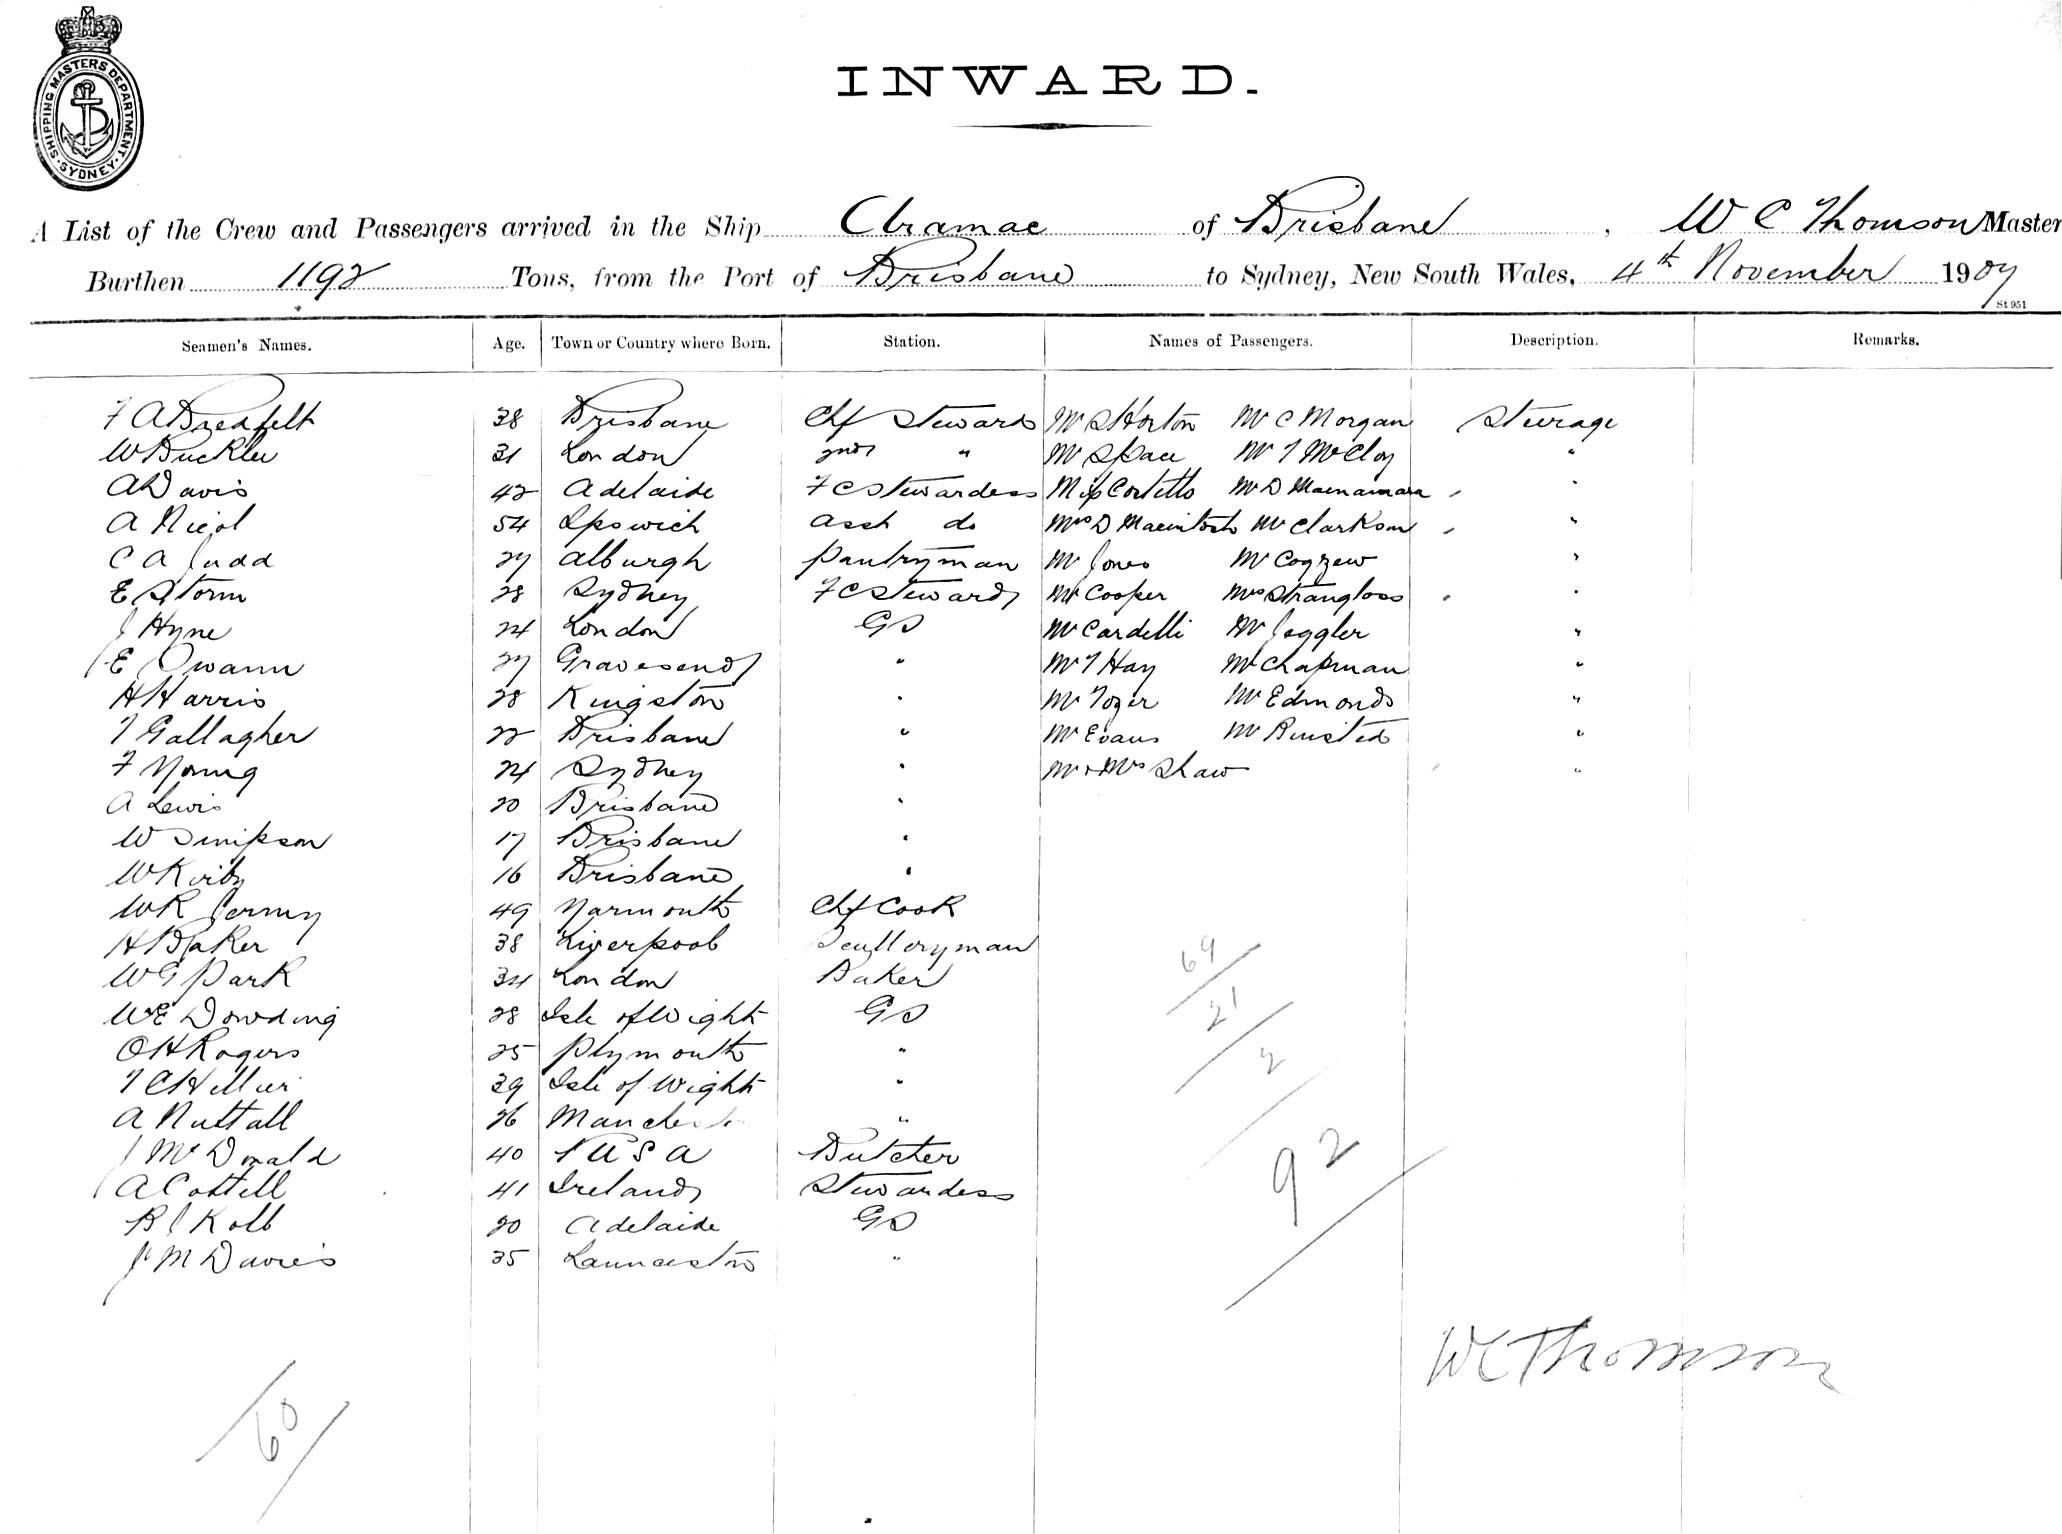 SHIPPING MASTERS DEPARTMENT · SYDNEY ·
INWARD.
A List of the Crew and Passengers arrived in the Ship Aramac of Brisbane, W C Thomson Master
Burthen 1192 Tons, from the Port of Brisbane to Sydney, New South Wales, 4th November 1907
St 951
Seamen's Names. Age. Town or Country where Born. Station. Names of Passengers. Description. Remarks.
F A Bredfelt 38 Brisbane Chf Steward Mr S Horton Mr C Morgan Steerage
W Buckler 31 London 2nd " Mr Space Mr T McCloy "
A Davis 42 Adelaide F C Stewardess Miss Corletto Mr D Macnamara "
A Nicol 54 Ipswich Asst do Mrs D Macintosh Mr Clarkson "
C A Judd 27 Alburgh Pantryman Mr Jones Mr "
E Storm 28 Sydney F C Steward Mr Cooper Mrs Strangloss "
J Hyne 24 London GS Mr Cardelli Mr Joggler "
E Swann 27 Gravesend " Mr T Hay Mr Chapman "
H Harris 28 Kingston " Mr Tozer Mr Edmonds "
T Gallagher 22 Brisbane " Mr Evans Mr Binsted "
F Young 24 Sydney " Mr & Mrs Shaw "
A Lewis 20 Brisbane "
W Simpson 17 Brisbane "
W Kirby 16 Brisbane "
W R Jermy 49 Yarmouth Chf Cook
H Baker 38 Liverpool Sculleryman
W G Park 34 London Baker
W E Dowding 28 Isle of Wight GS
O H Rogers 25 Plymouth "
T C Hillier 39 Isle of Wight "
A Nuttall 26 Manchester "
J McDonald 40 U S A Butcher
A Cottell 41 Ireland Stewardess
R J Kolb 20 Adelaide GS
J M Davies 35 Launceston "
69
21
2
92
W C Thomson
60